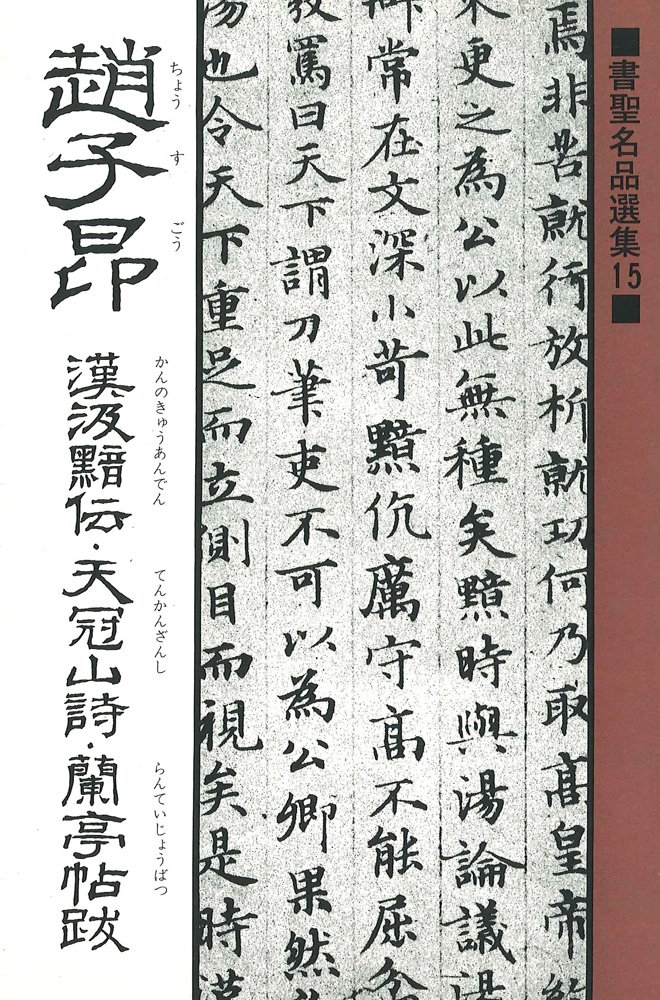 ■書聖名品選集15■
焉非苦就行放析就功何乃取高皇帝
更之為公以此無種矣黯時與湯論議湯
辯常在文深小苛黯伉厲守高不能屈忿
罵曰天下謂刀筆吏不可以為公卿果然
湯也令天下重足而立側目而視矣是時漢
ちょう す ごう
趙子昂
かんのきゅうあんでん てんかんざんし らんていじょうばつ
漢汲黯伝・天冠山詩・蘭亭帖跋